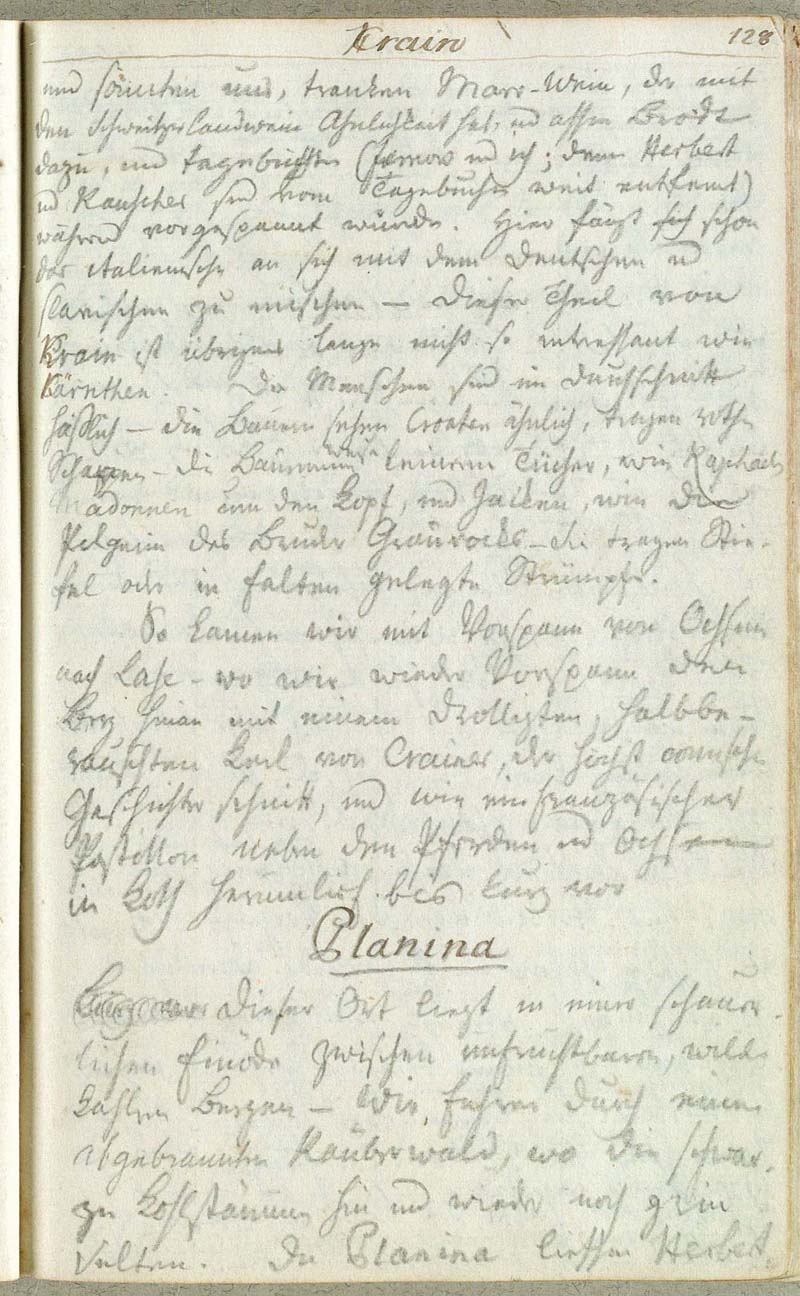 Krain 128
und sonnten uns, tranken Marr-Wein, der mit
den Schweitzerlandwein Ähnlichkeit hat, und assen Brodt
dazu, und tagebuchten (Fernow und ich; denn Herbert
und Rauscher sind vom Tagebuche weit entfernt)
während vorgespannt wurde. Hier fängt sich schon
das italienische an sich mit dem Deutschen und
slavischen zu mischen – dieser Theil von
Krain ist übrigens lange nicht so intressant wie
Kärnthen. Die Menschen sind im Durchschnitt
häßlich – die Bauern sehen Croaten ähnlich, tragen rothe
Schappen – die Bäurinnen weise leinerne Tücher, wie Raphaels
Madonnen um den Kopf, und Jacken, wie die
Pilgerin des Bruder Graurocks – sie tragen Stie-
fel oder in Falten gelegte Strümpfe.
So kamen wir mit Vorspann von Ochsen
nach Lase – wo wir wieder Vorspann den
Berg hinan mit einem drolligten, halbbe-
rauschten Kerl von Crainer, der höchst comische
Gesichter schnitt, und wie ein französischer
Postillon neben den Pferden und Ochsen
in Koth herumlief bis kurz vor
Planina
Dieser Ort liegt in einer schauer-
lichen Einöde zwischen unfruchtbaren, wilden
kahlen Bergen – Wir fuhren durch einen
abgebrannten Räuberwald, wo die schwar-
zen Kohlstämme hin und wieder noch grün
. In Planina liessen Herbert